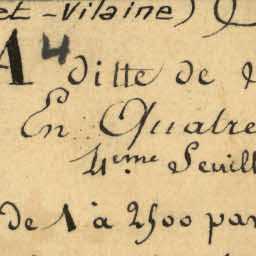 et-Vilaine)
A 4 ditte de
En Quatre
4ème Feuill
de 1 à 2500 par